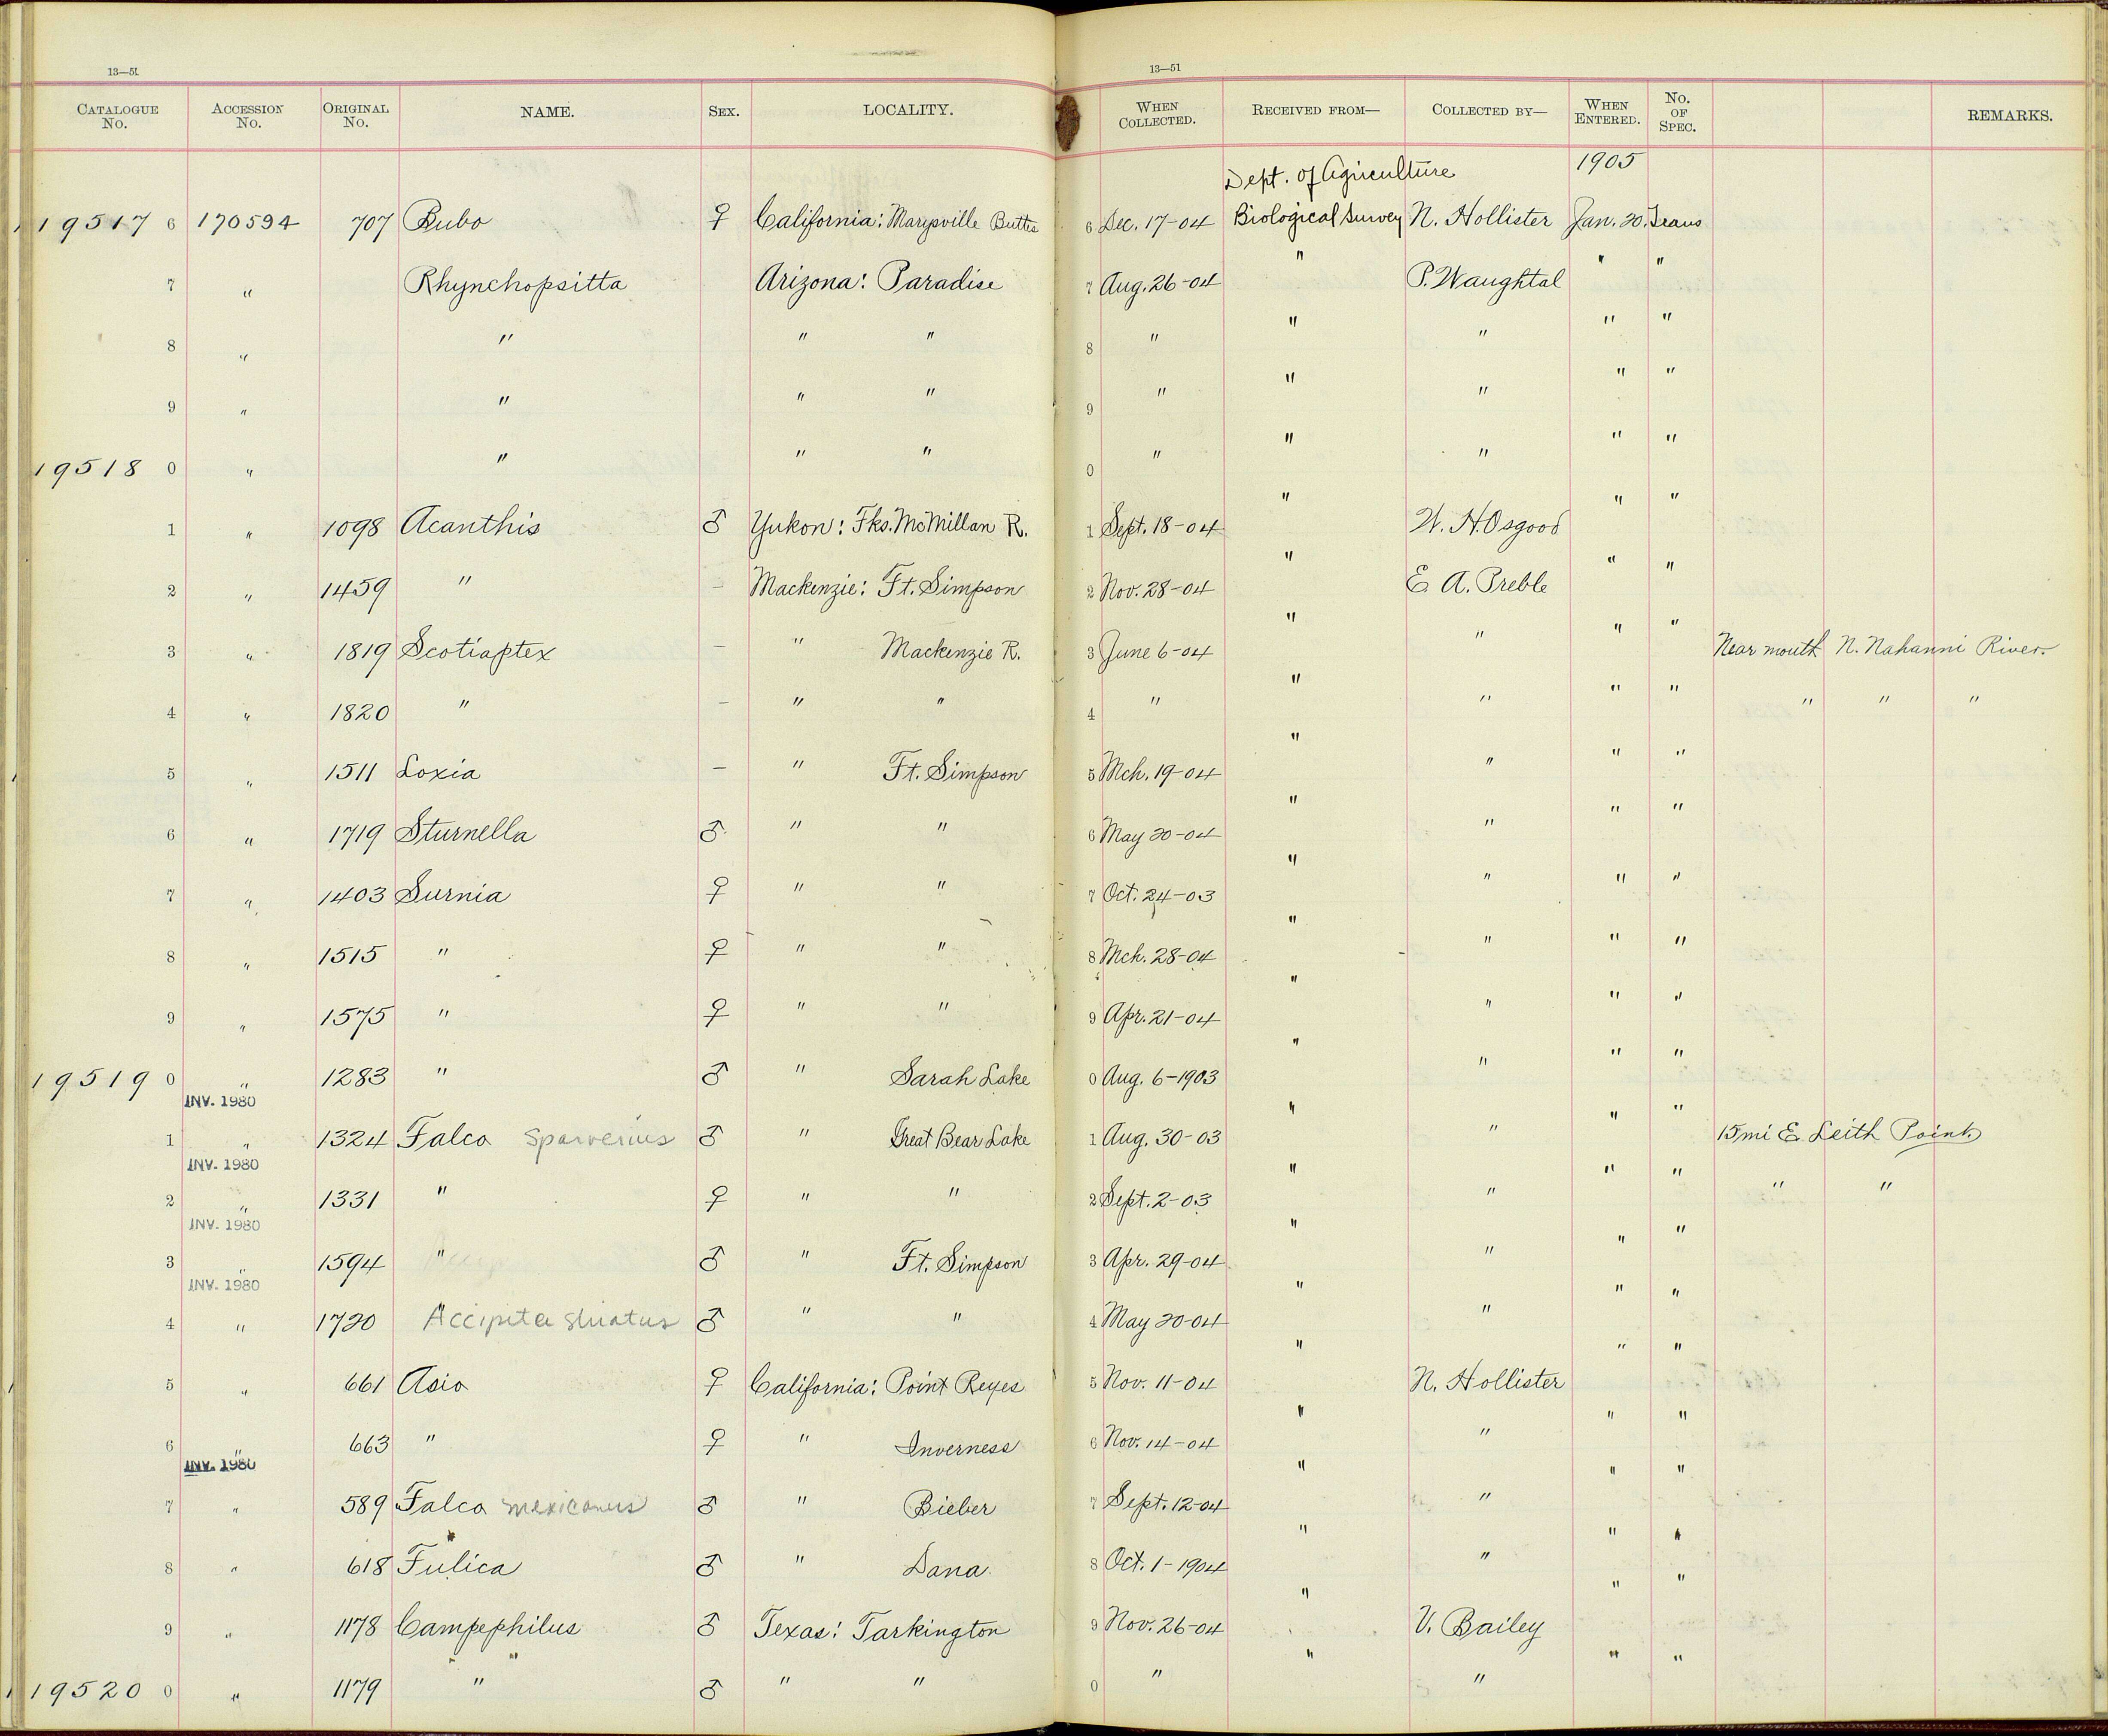 13—51
13—51
CATALOGUE No. ACCESSION No. ORIGINAL No. NAME. SEX. LOCALITY. WHEN COLLECTED. RECEIVED FROM— COLLECTED BY— WHEN ENTERED. No. OF SPEC. REMARKS.
Dept. of Agriculture 1905
19517 6 170594 707 Bubo ♀ California: Marysville Buttes 6 Dec. 17-04 Biological Survey N. Hollister Jan. 20. Trans
7 " Rhynchopsitta Arizona: Paradise 7 Aug. 26-04 " P. Waughtal " "
8 " " " " 8 " " " " "
9 " " " " 9 " " " " "
19518 0 " " " " 0 " " " " "
1 " 1098 Acanthis ♂ Yukon: Fks. McMillan R. 1 Sept. 18-04 " W. H. Osgood " "
2 " 1459 " — Mackenzie: Ft. Simpson 2 Nov. 28-04 " E. A. Preble " "
3 " 1819 Scotiaptex — " Mackenzie R. 3 June 6-04 " " " " Near mouth N. Nahanni River.
4 " 1820 " — " " 4 " " " " " " " "
5 " 1511 Loxia — " Ft. Simpson 5 Mch. 19-04 " " " "
6 " 1719 Sturnella ♂ " " 6 May 20-04 " " " "
7 " 1403 Surnia ♀ " " 7 Oct. 24-03 " " " "
8 " 1515 " ♀ " " 8 Mch. 28-04 " " " "
9 " 1575 " ♀ " " 9 Apr. 21-04 " " " "
19519 0 " 1283 " ♂ " Sarah Lake 0 Aug. 6-1903 " " " "
INV. 1980
1 " 1324 Falco sparverius ♂ " Great Bear Lake 1 Aug. 30-03 " " " " 15 mi E. Leith Point.
INV. 1980
2 " 1331 " ♀ " " 2 Sept. 2-03 " " " " " "
INV. 1980
3 " 1594 " ♂ " Ft. Simpson 3 Apr. 29-04 " " " "
INV. 1980
4 " 1720 " Accipiter striatus ♂ " " 4 May 20-04 " " " "
5 " 661 Asio ♀ California: Point Reyes 5 Nov. 11-04 " N. Hollister " "
6 " 663 " ♀ " Inverness 6 Nov. 14-04 " " " "
INV. 1980
7 " 589 Falco mexicanus ♂ " Bieber 7 Sept. 12-04 " " " "
8 " 618 Fulica ♂ " Dana 8 Oct. 1-1904 " " " "
9 " 1178 Campephilus ♂ Texas: Tarkington 9 Nov. 26-04 " V. Bailey " "
19520 0 " 1179 " ♂ " " 0 " " " " "